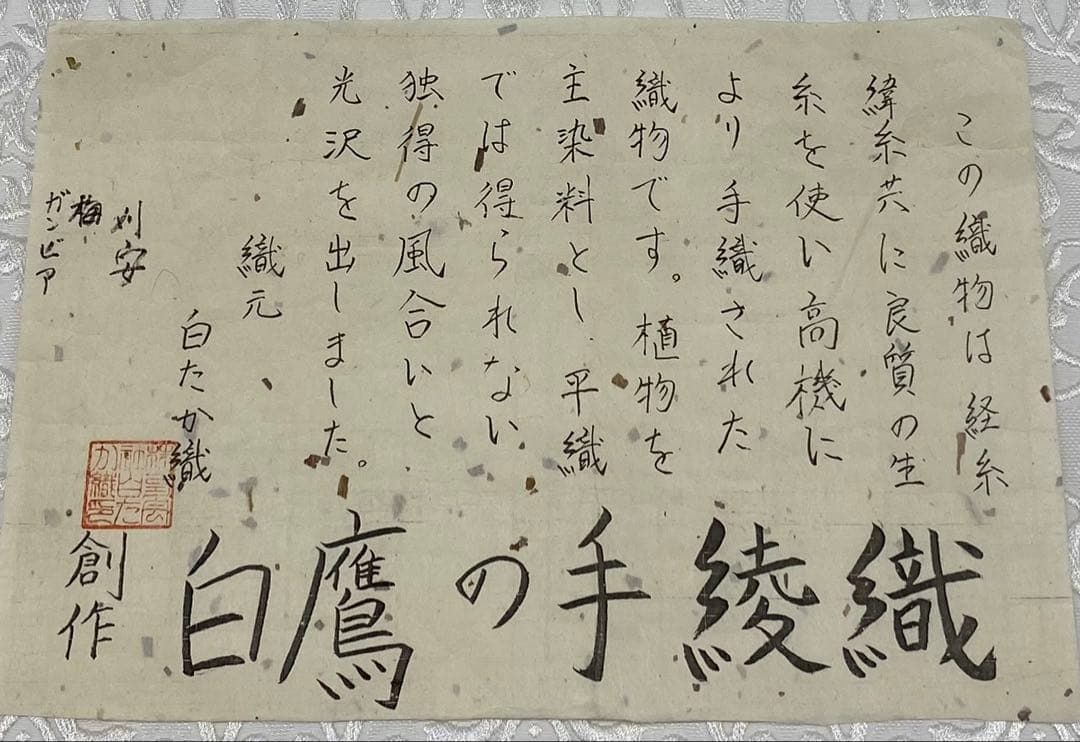 この織物は経糸
緯糸共に良質の生
糸を使い高機に
より手織された
織物です。植物を
主染料とし平織
では得られない
独得の風合いと
光沢を出しました。
織元
白たか織
刈安
梅
ガンビア
創作
白鷹の手綾織